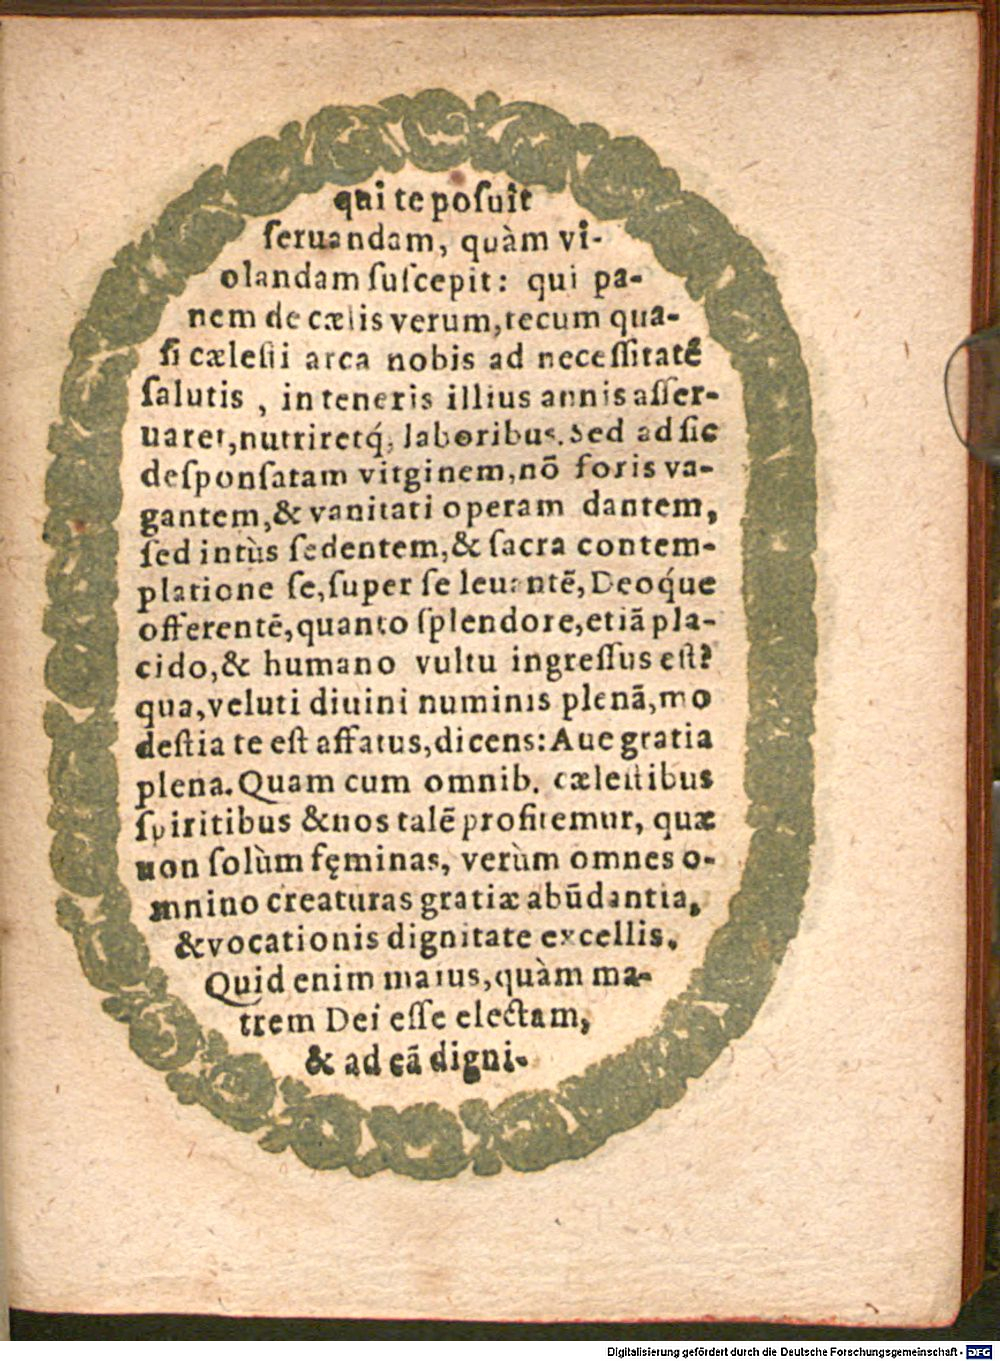 qui te poſuit
ſeruandam, quàm vi-
olandam ſuſcepit: qui pa-
nem de cælis verum, tecum qua-
ſi cæleſti arca nobis ad neceſſitatē
ſalutis, in teneris illius annis aſſer-
uaret, nutriretq́; laboribus. Sed ad ſic
deſponſatam virginem, nō foris va-
gantem, & vanitati operam dantem,
ſed intùs ſedentem, & ſacra contem-
platione ſe, ſuper ſe leuantē, Deoq́ue
offerentē, quanto ſplendore, etiā pla-
cido, & humano vultu ingreſſus eſt?
qua, veluti diuini numinis plenā, mo
deſtia te eſt affatus, dicens: Aue gratia
plena. Quam cum omnib. cæleſtibus
ſpiritibus & nos talē profitemur, quæ
non ſolùm fęminas, verùm omnes o-
mnino creaturas gratiæ abūdantia,
& vocationis dignitate excellis.
Quid enim maius, quàm ma-
trem Dei eſſe electam,
& ad eā digni-
Digitalisierung gefördert durch die Deutsche Forschungsgemeinschaft - DFG